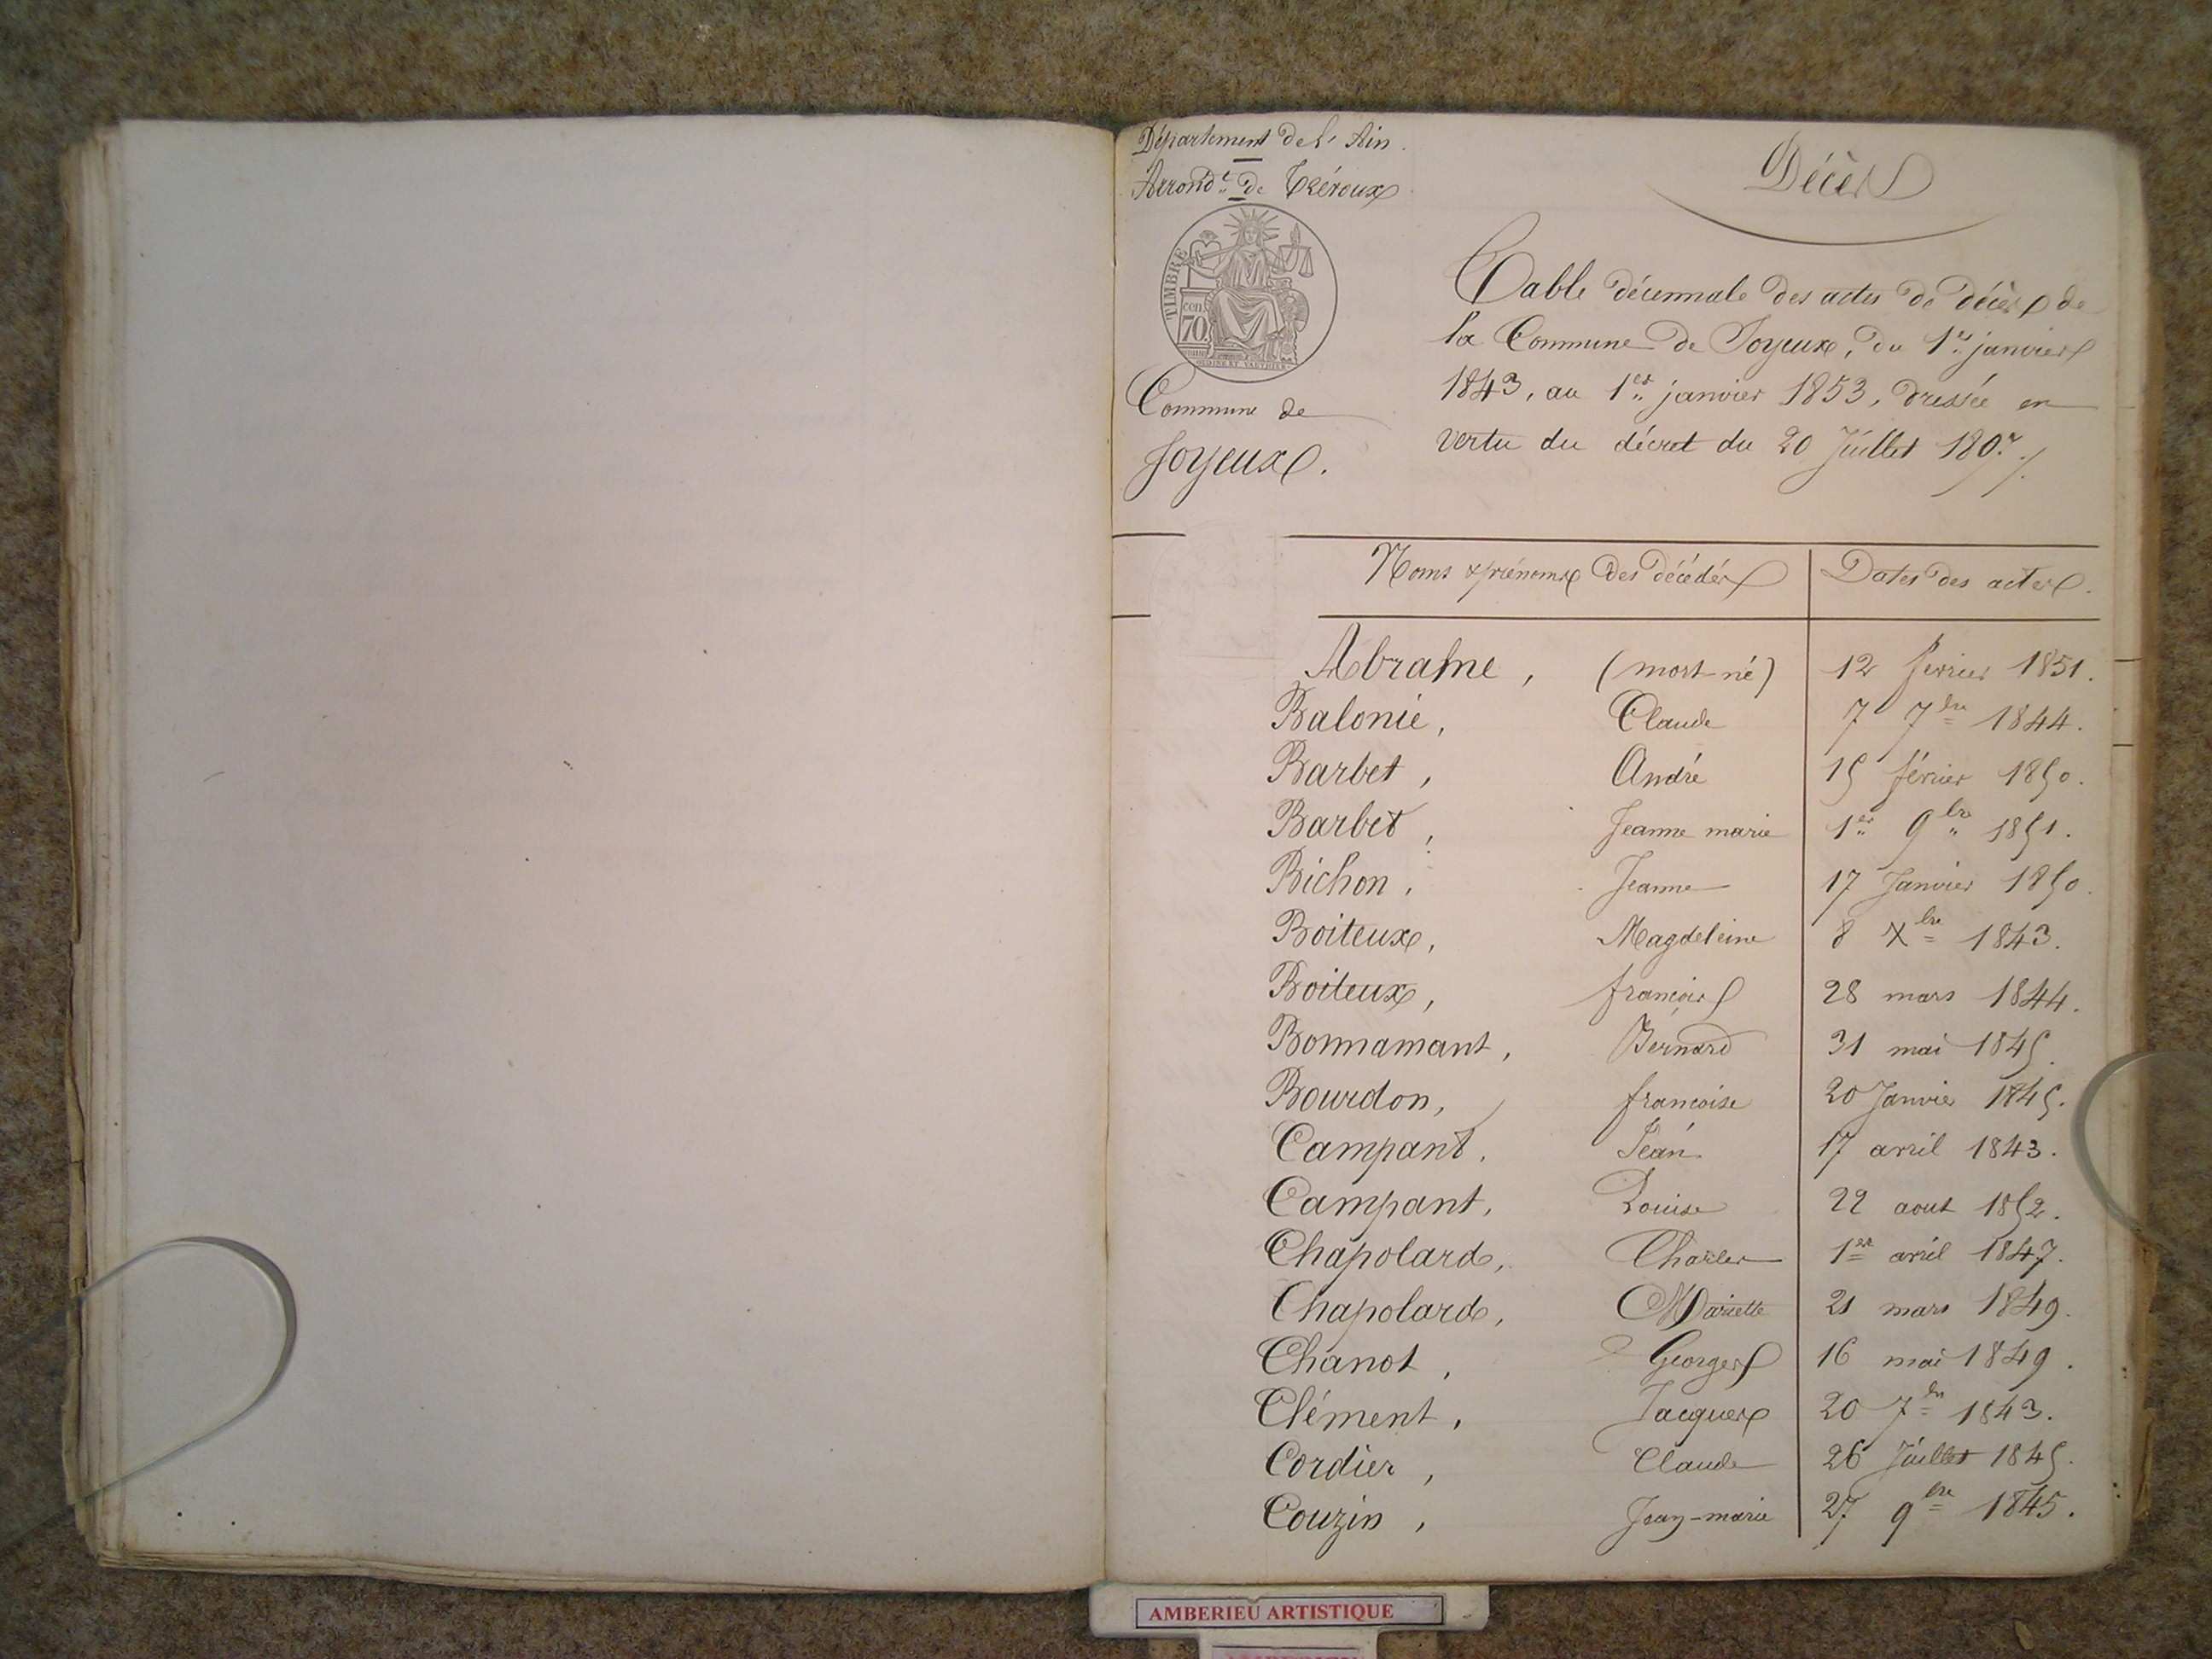 Département de l'Ain.
Arrondt. de Trévoux
Décès
TIMBRE
70
Commune de
Joyeux.
Table décennale des actes de décès de
la Commune de Joyeux, du 1er janvier
1843, au 1er janvier 1853, dressée en
vertu du décret du 20 Juillet 1807.
Noms & prénoms des décédés Dates des actes.
Abrahme, (mort-né) 12 fevrier 1851.
Balonié, Claude 7 7bre 1844.
Barbet, André 15 février 1850.
Barbet, Jeanne marie 1er 9bre 1851.
Bichon, Jeanne 17 Janvier 1850.
Boiteux, Magdeleine 8 Xbre 1843.
Boiteux, francois 28 mars 1844.
Bonnamant, Bérnard 31 mai 1845.
Bourdon, francoise 20 Janvier 1845.
Campant, Jean 17 avril 1843.
Campant, Louise 22 aout 1852.
Chapolard, Charles 1er avril 1847.
Chapolard, Mariette 21 mars 1849.
Chanot, Georges 16 mai 1849.
Clément, Jacques 20 7bre 1843.
Cordier, Claude 26 Juillet 1845.
Couzin, Jean-marie 27 9bre 1845.
AMBERIEU ARTISTIQUE